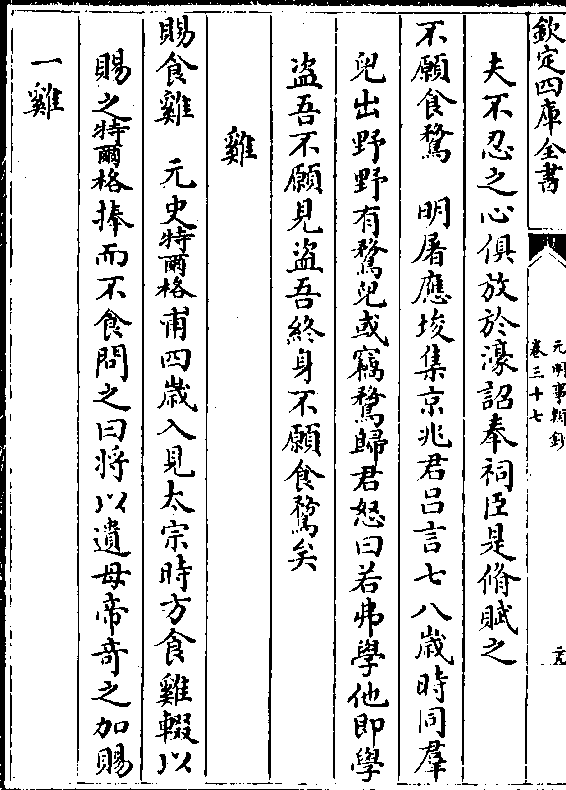 欽定四庫全書
元明事類鈔
卷三十七
夫不忍之心俱放於濠詔奉祠臣是脩賦之
不願食鶩　明屠應埈集京兆君吕言七八歲時同羣
兒出野野有鶩兒或竊鶩歸君怒曰若弗學他即學
盜吾不願見盜吾終身不願食鶩矣
雞
賜食雞　元史特爾格甫四歲入見太宗時方食雞輟以
賜之特爾格捧而不食問之曰将以遺母帝奇之加賜
一雞